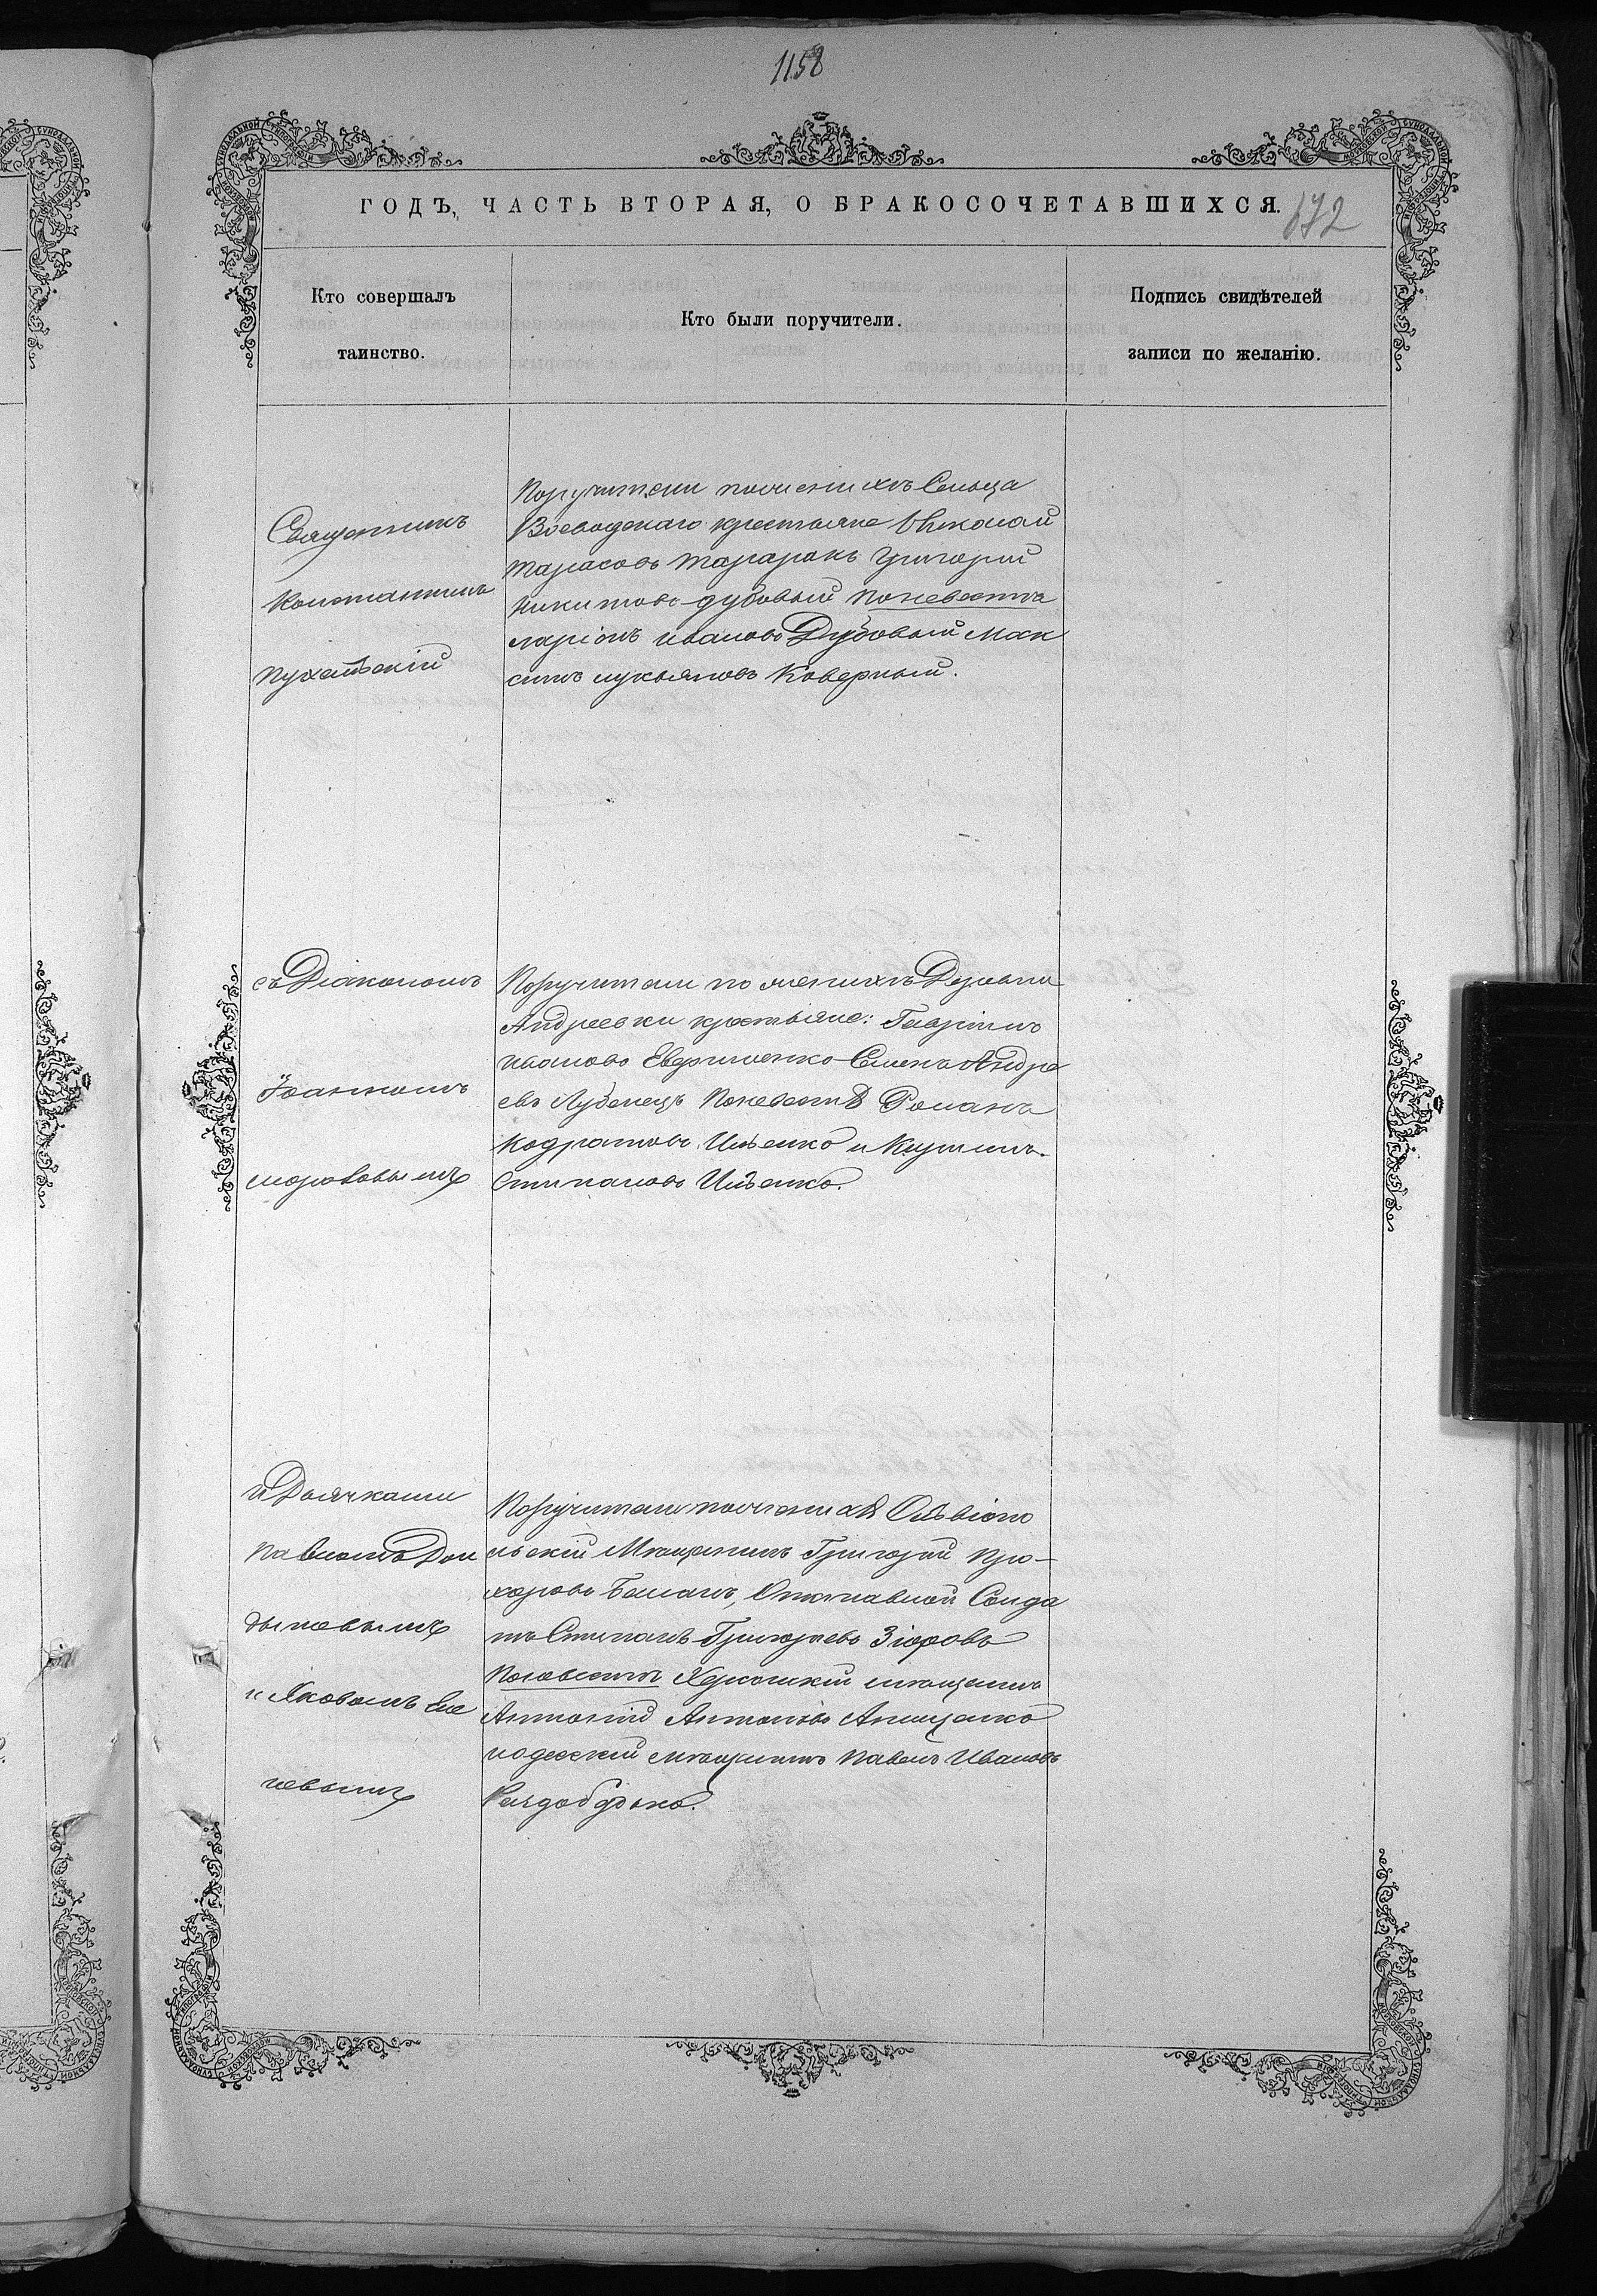 1158
ГОДЪ, ЧАСТЬ ВТОРАЯ, О БРАКОСОЧЕТАВШИХСЯ.
672
Кто совершалъ
таинство.
Кто были поручители.
Подпись свидѣтелей
записи по желанію.
Священникъ
Константинъ
Пухальскій
Поручители по женихѣ Сельца
Воеводскаго крестьяне Николай
Тарасовъ Григорій
Никитовъ Дубовый по невестѣ
ларіонъ ивановъ Дубовый Мак
симъ лукьяновъ Коверный.
съ Діакономъ
Іоанномъ
Поручители по женихѣ Деревни
Андреевки крестьяне: Гавріилъ
ивановъ Семенъ Андре
евъ Лубенецъ По невестѣ Романъ
Кодратовъ Ильенко и
Стипановъ Ильенко.
и Дьячками
Павломъ Дон
цовымъ
и Яковомъ
Поручители по женихѣ Ольвіопо
льскій Мѣщанинъ Григорій Про-
хоровъ Отставной Солда
тъ Стипанъ Григорьевъ
По невестѣ Херсонскій мѣщанинъ
Антоній Антоновъ Анищенко
и одесскій мѣщанинъ Павелъ Ивановъ